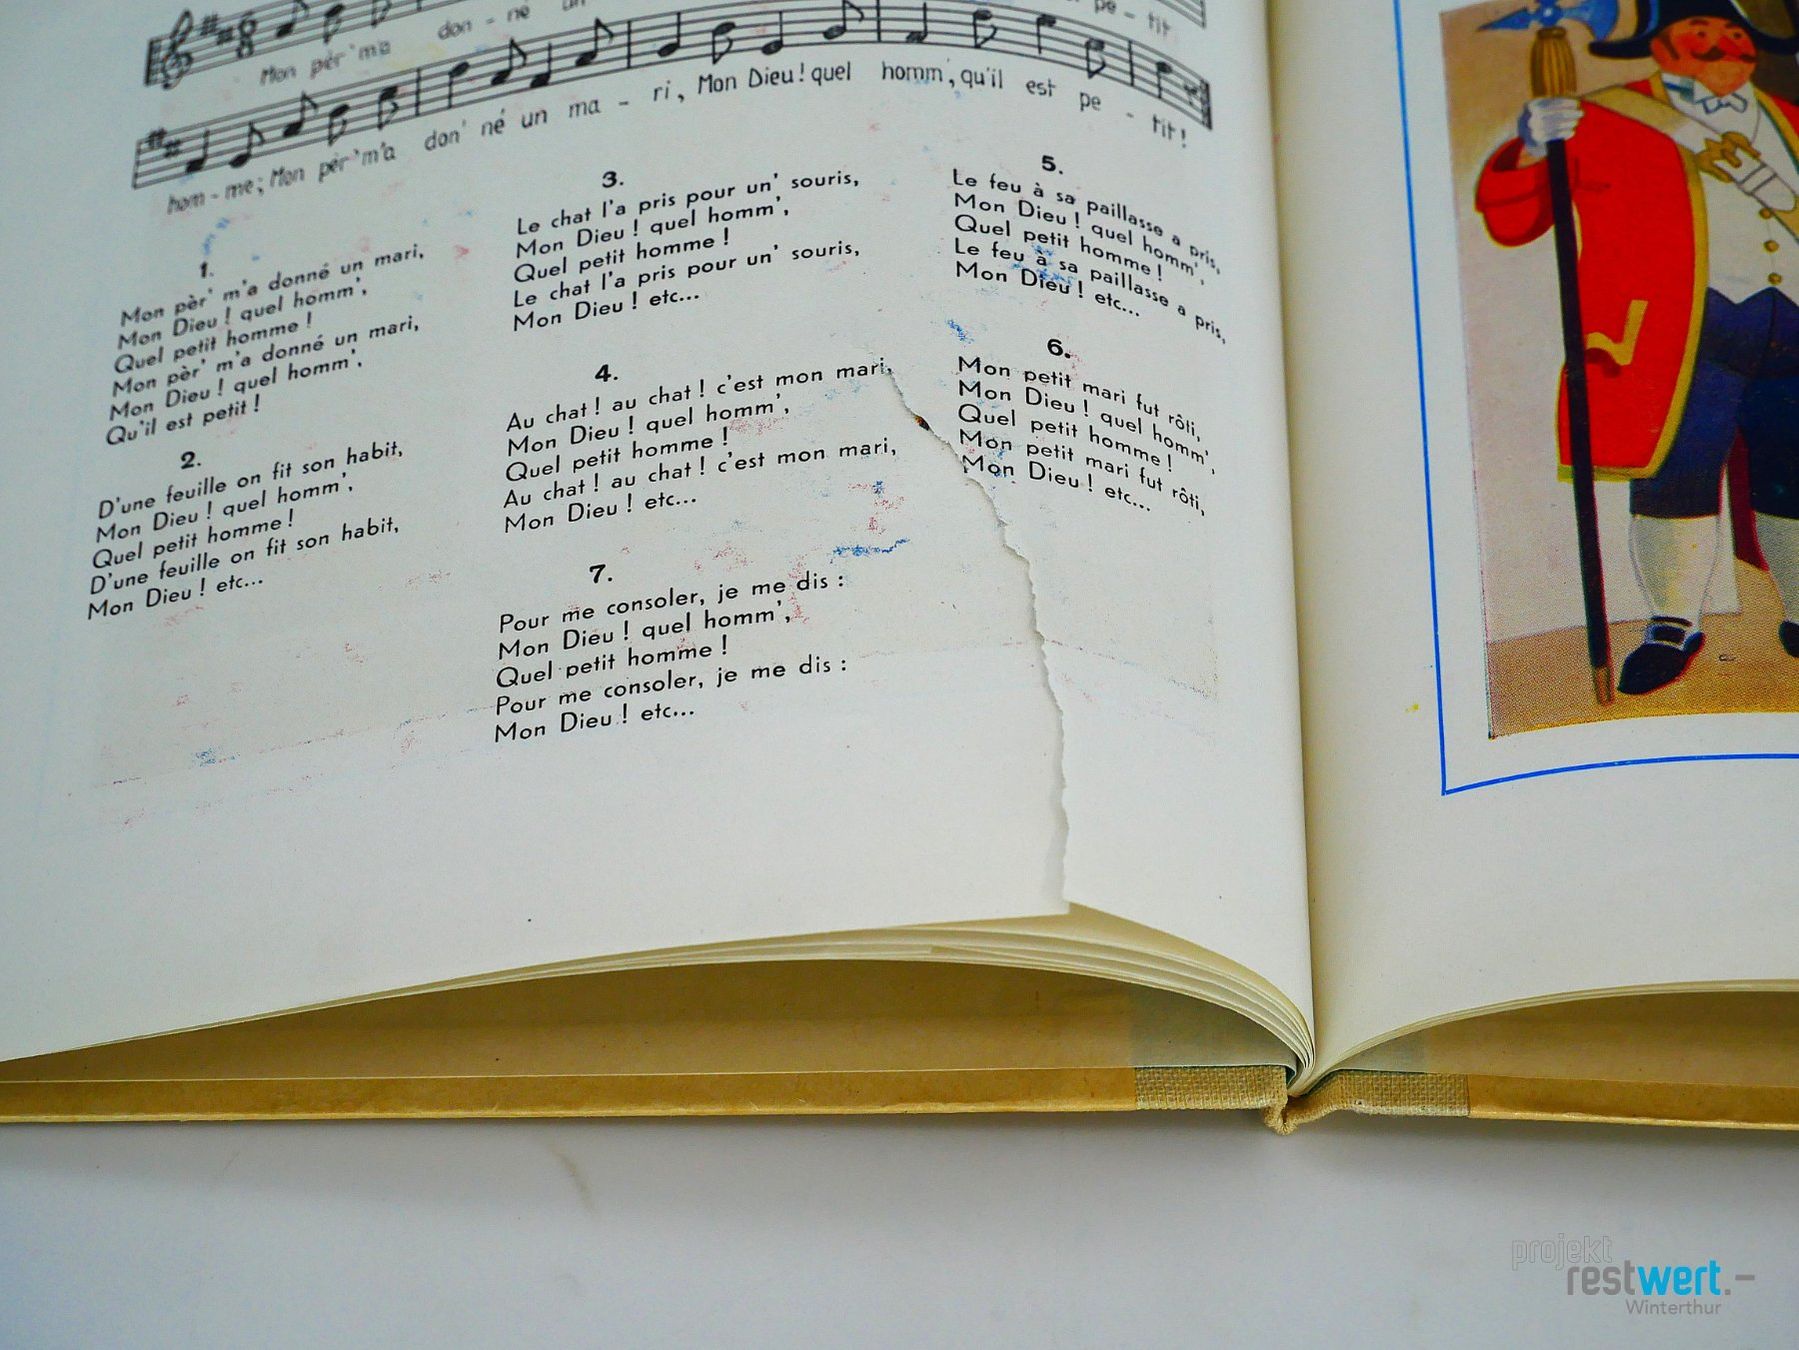 Mon pèr' m'a don - né un pe - tit
hom - me; Mon pèr' m'a don' né un ma - ri, Mon Dieu! quel homm', qu'il est pe - tit!
1.
Mon pèr' m'a donné un mari,
Mon Dieu ! quel homm',
Quel petit homme !
Mon pèr' m'a donné un mari,
Mon Dieu ! quel homm',
Qu'il est petit !
2.
D'une feuille on fit son habit,
Mon Dieu ! quel homm',
Quel petit homme !
D'une feuille on fit son habit,
Mon Dieu ! etc...
3.
Le chat l'a pris pour un' souris,
Mon Dieu ! quel homm',
Quel petit homme !
Le chat l'a pris pour un' souris,
Mon Dieu ! etc...
4.
Au chat ! au chat ! c'est mon mari,
Mon Dieu ! quel homm',
Quel petit homme !
Au chat ! au chat ! c'est mon mari,
Mon Dieu ! etc...
7.
Pour me consoler, je me dis :
Mon Dieu ! quel homm',
Quel petit homme !
Pour me consoler, je me dis :
Mon Dieu ! etc...
5.
Le feu à sa paillasse a pris,
Mon Dieu ! quel homm',
Quel petit homme !
Le feu à sa paillasse a pris,
Mon Dieu ! etc...
6.
Mon petit mari fut rôti,
Mon Dieu ! quel homm',
Quel petit homme !
Mon petit mari fut rôti,
Mon Dieu ! etc...
projekt
restwert.–
Winterthur